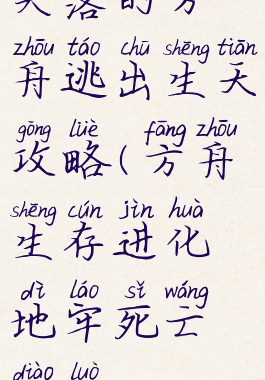 失落的方
zhōu táo chū shēng tiān
舟逃出生天
gōng lüè fāng zhōu
攻略(方舟
shēng cún jìn huà
生存进化
dì láo sǐ wáng
地牢死亡
diào luò